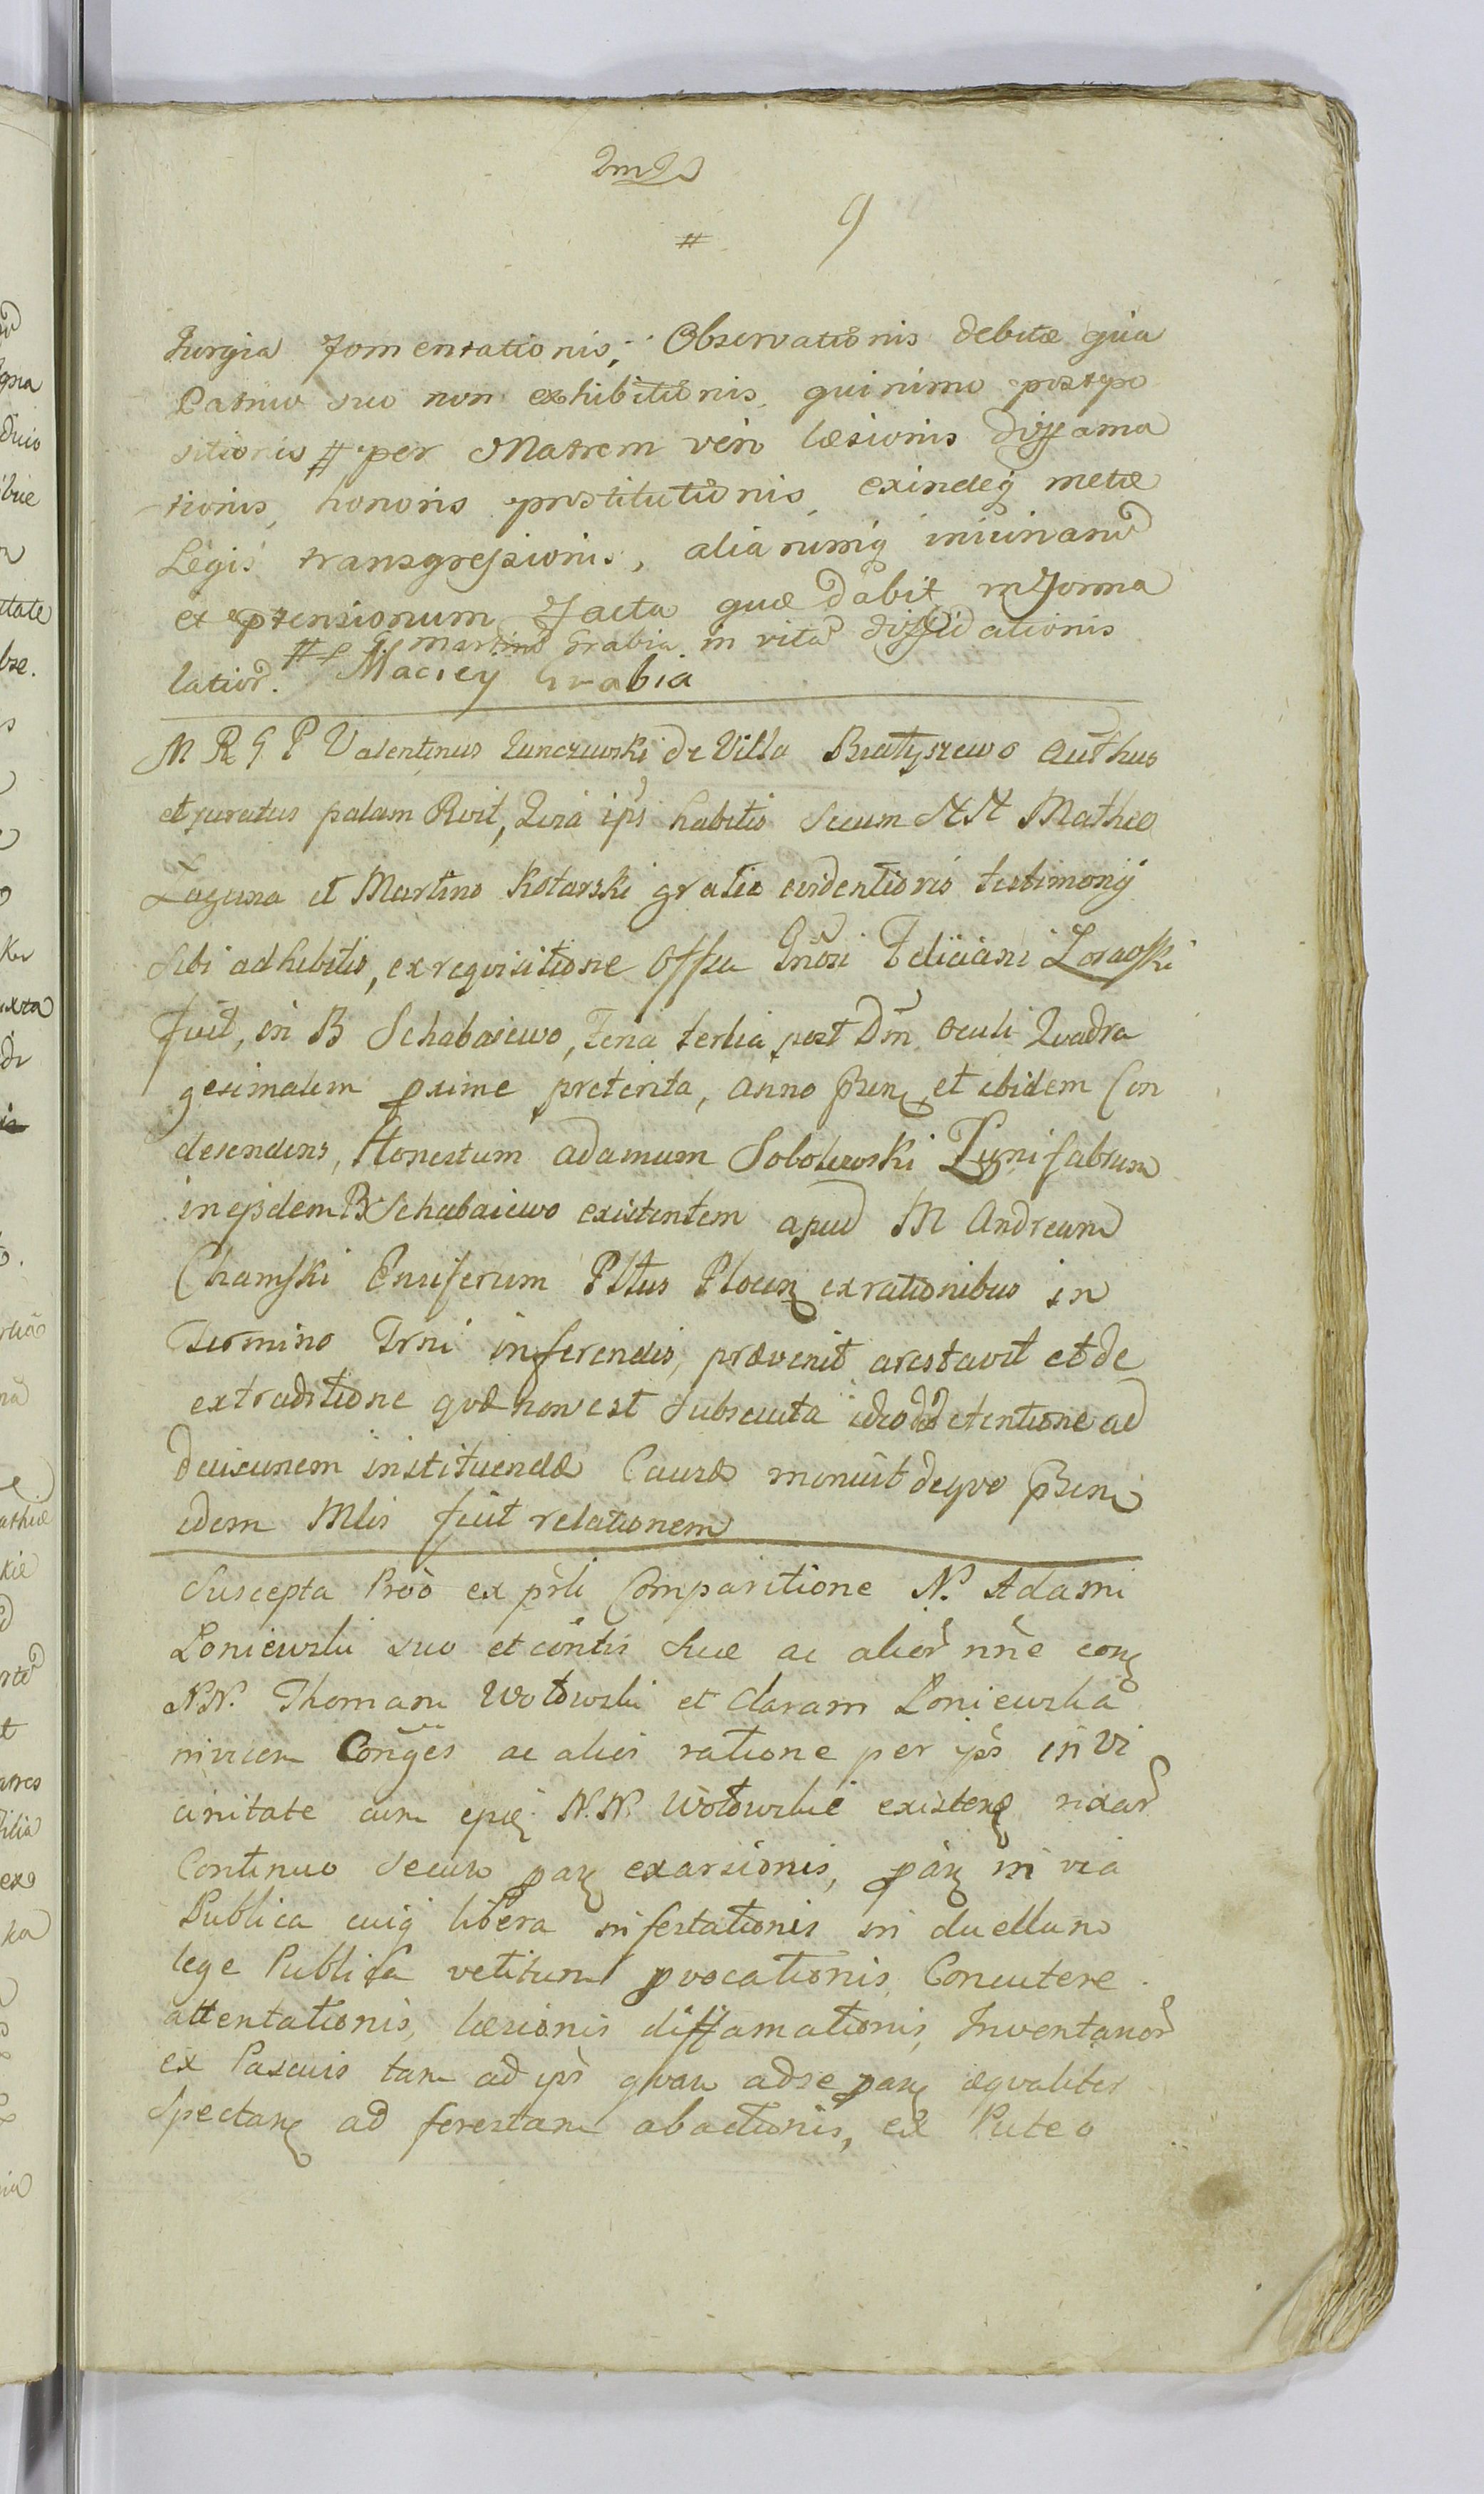 9
#
Jurgia fomentationis, Observationis debitæ qua
Patruo suo non exhibitionis, quinimo postpo
sitionis # per Matrem vero læsionis diffama
tionis, honoris prostitutionis, exindeq metæ
Legis transgressionis, aliarumq iniuriarū
et prtensionum facta quæ dabit in forma
# Martinū Grabia in vitā diffidationis
latior. Maciey Grabia
M R G P Valentinus de Villa Bratyszewo Authus
et juratus palam Rvit, Quia ips habitis secum NN Matheo
Laguna et Martino Kotarski gratia evidentioris testimonij
sibi adhibitis, ex requisitione Offsa Gnosi Feliciani
fuit, in B Schabaiewo, Feria tertia post Dm̄ Oculi Quadra
gesimalem pxime preterita, anno pñ et ibidem Con
descendens, Honestum Adamum Sobolewski Lignifabrum
in ejsdem B Schabaiewo existentem apud M Andream
Chamski Ensiferum Pltus Plocen ex rationibus in
Termino Trni inferendis, prævenit arestavit et de
extraditione quæ non est subsecuta ideo detentione ad
decisionem instituendæ Causæ monuit deqvo pñ
idem Mlis fecit relationem
Suscepta Prõõ ex pñli Comparitione N. Adami
Loniewski suo et cõntis suæ ac alior nñe con
NN. Thomam Wołowski et Claram Loniewskā
invicem Cõnges ac alios ratione per ips in Vi
cinitate cum epõ. N.N. Wołowskie existen rixar
Continuo secum paz exarsionis, paz in via
Publica cuiq libera infestationis in duellum
lege Publica vetitum pvocationis, Concutere
attentationis, læsionis diffamationis, Inventarior
ex Pascuis tam ad ips quam ad se paz æqvaliter
Spectan ad forestam abactionis, ex Puteo